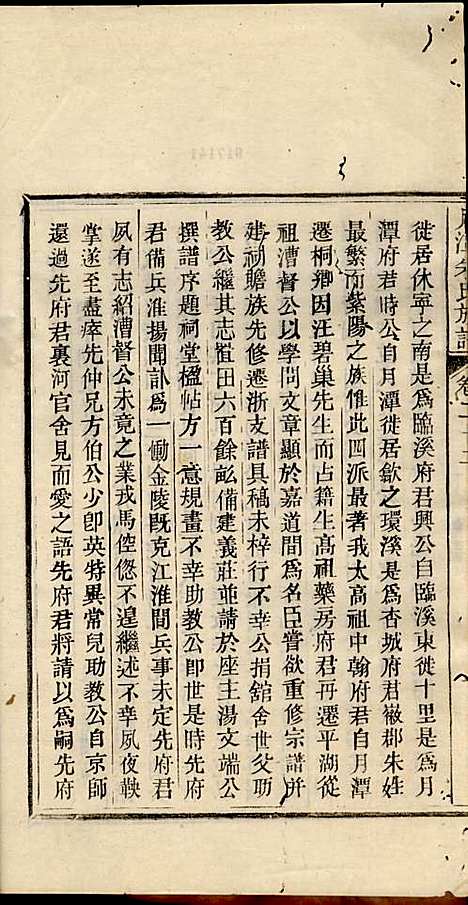 徙居休寧之南是爲臨溪府君興公自臨溪東徙十里是爲月
潭府君時公自月潭徙居歙之環溪是爲杏城府君徽郡朱姓
最繁而紫陽之族惟此四派最著我太高祖中翰府君自月潭
遷桐鄉因汪碧巢先生而占籍生高祖藥房府君再遷平湖從
建祠贍族先修遷浙支譜具稿未梓行不幸公捐舘舍世父助
祖漕督公以學問文章顯於嘉道間爲名臣嘗欲重修宗譜併
教公繼其志置田六百餘畝備建義莊並請於座主湯文端公
撰譜序題祠堂楹帖方一意規畫不幸助教公卽世是時先府
君備兵淮揚聞訃爲一慟金陵旣克江淮間兵事未定先府君
夙有志紹漕督公未竟之業戎馬倥偬不遑繼述不幸夙夜鞅
掌遂至盡瘁先仲兄方伯公少卽英特異常兒助教公自京師
還過先府君裏河官舍見而愛之語先府君將請以爲嗣先府
朱氏族譜